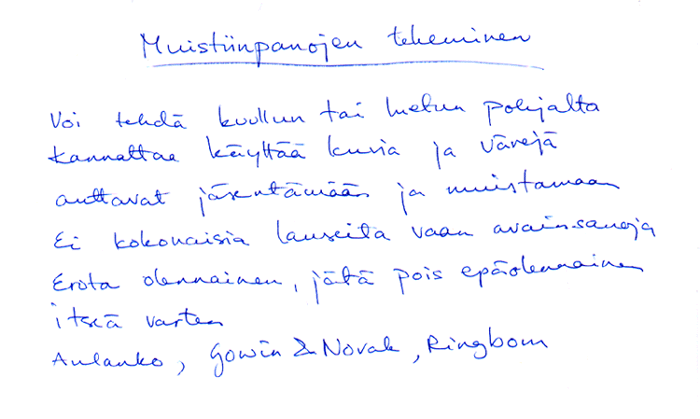 Muistiinpanojen tekeminen
Voi tehdä kuullun tai luetun pohjalta
Kannattaa käyttää kuvia ja värejä
auttavat jäsentämään ja muistamaan
Ei kokonaisia lauseita vaan avainsanoja
Erota olennainen, jätä pois epäolennainen
itseä varten
Aulanko, Gowin & Novak, Ringbom